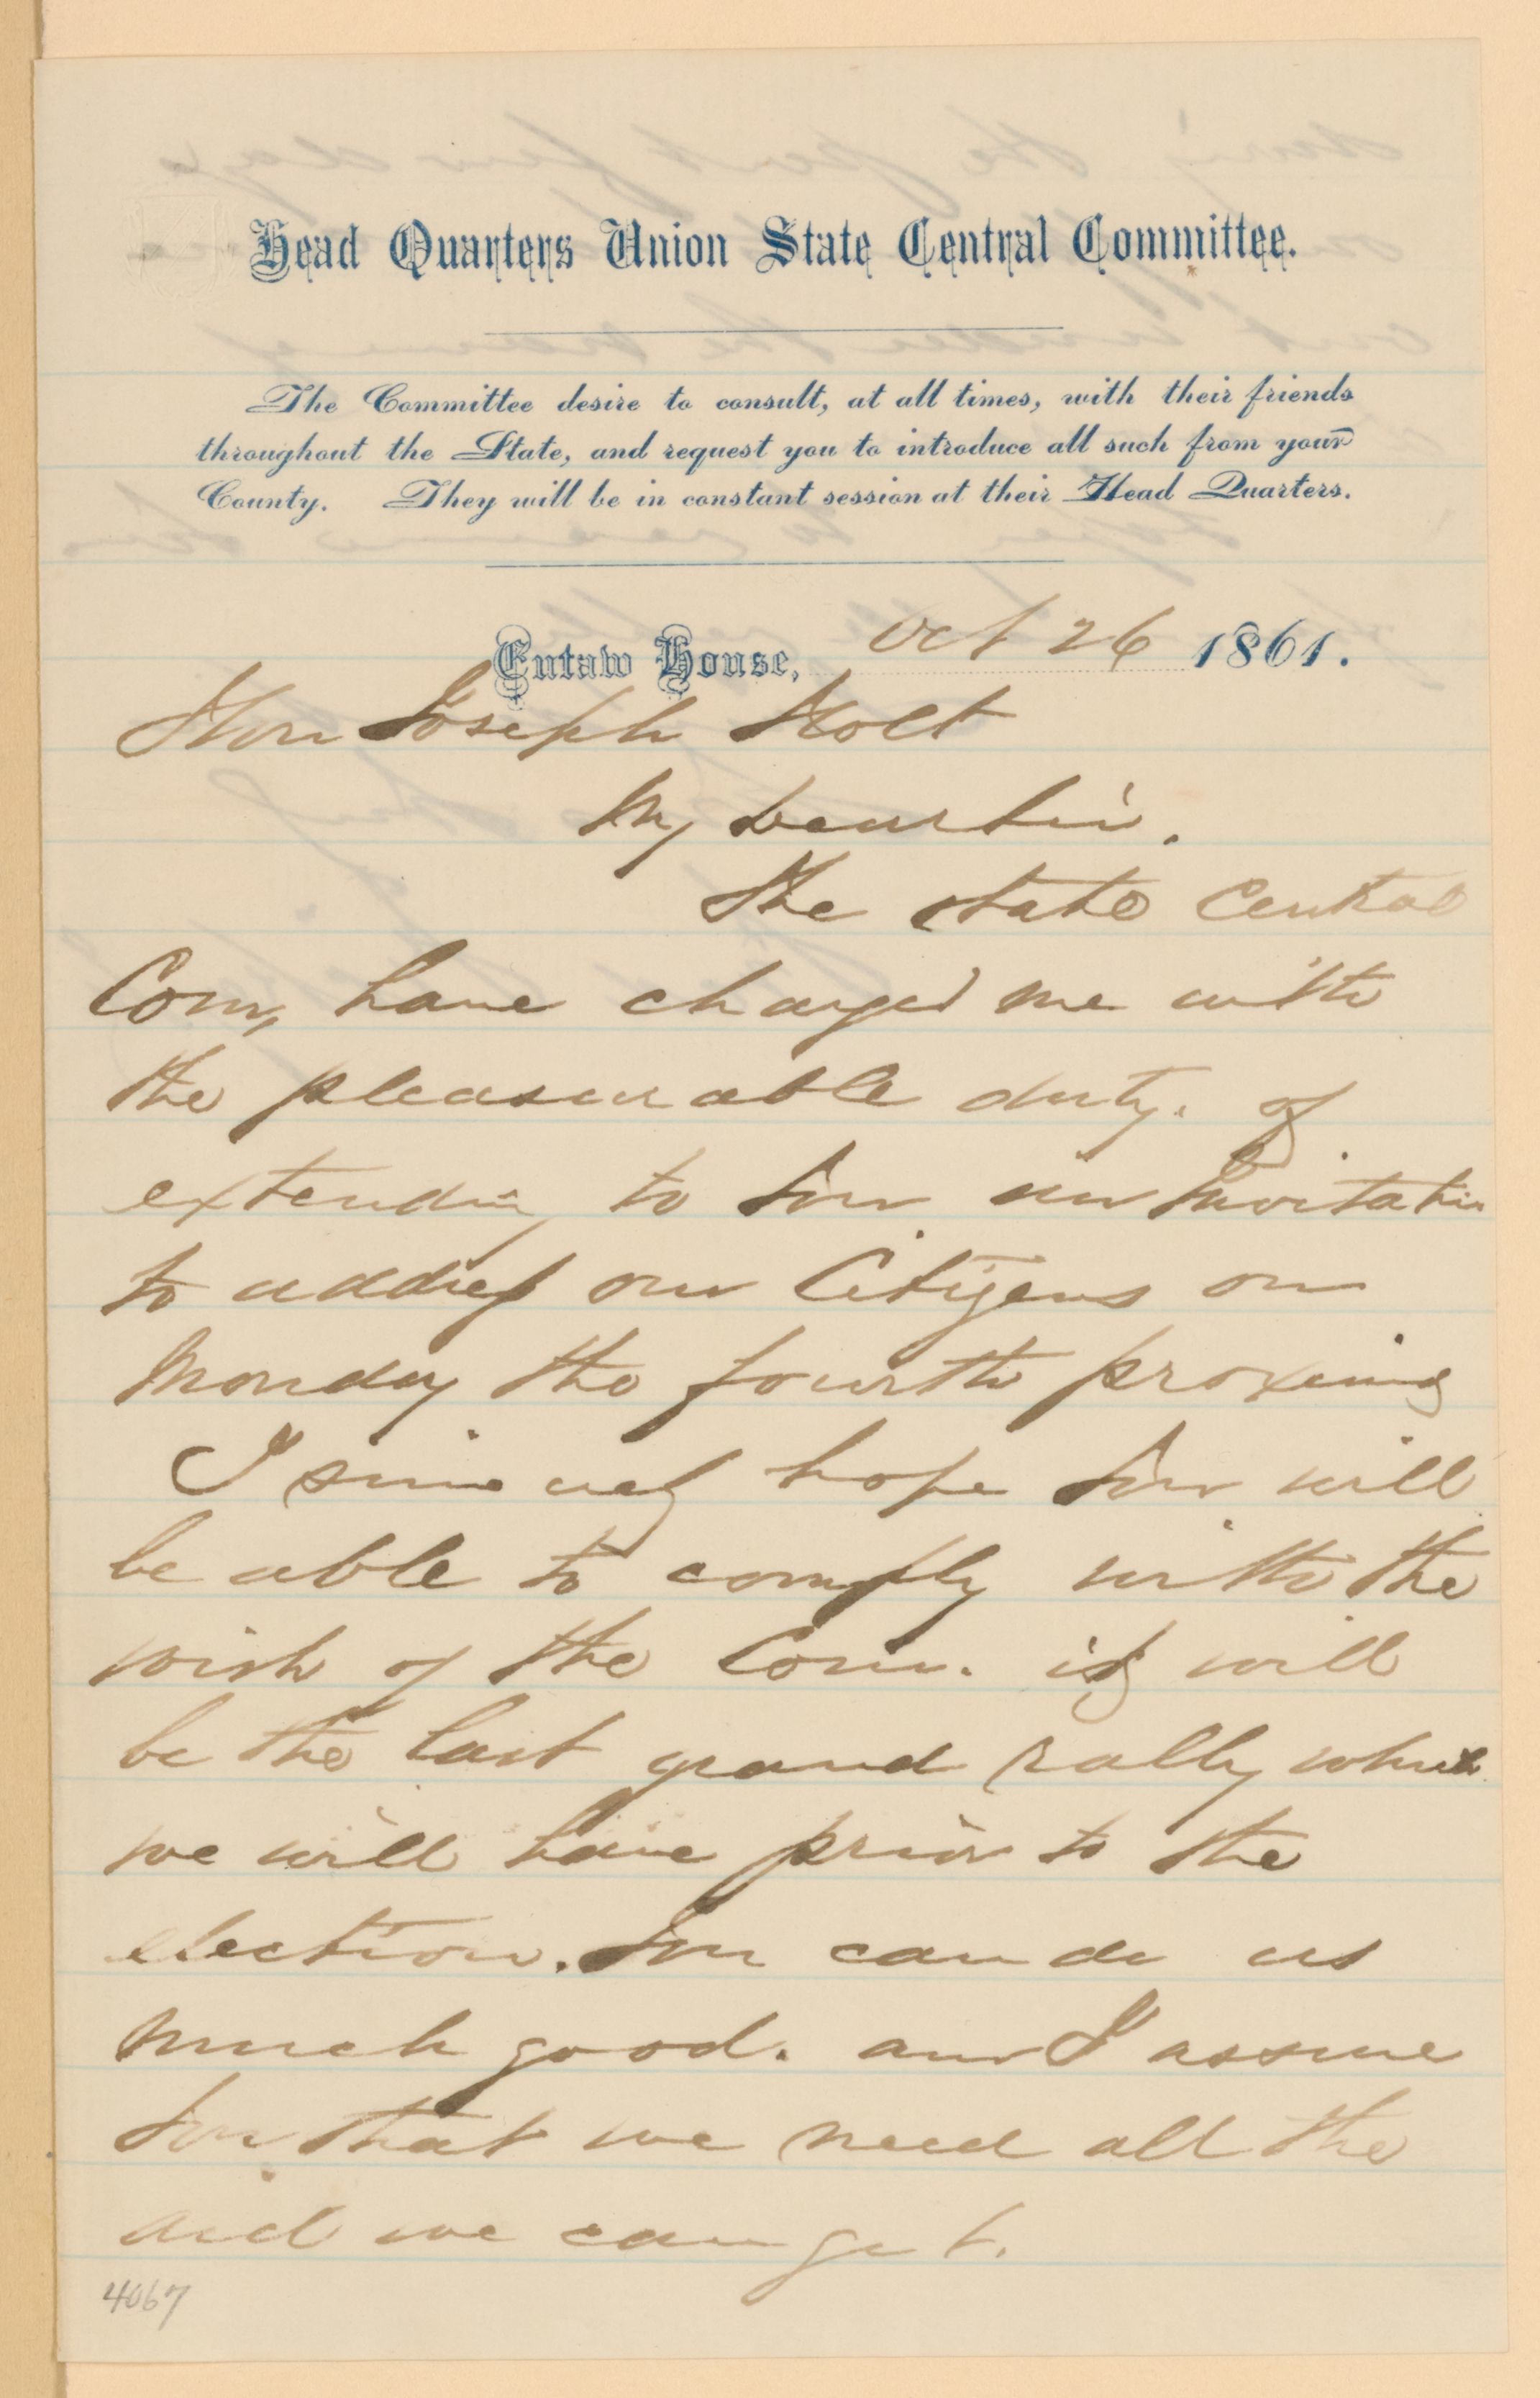 Head Quarters Union State Central Committee.
The Committee desire to consult, at all times, with their friends
throughout the State, and request you to introduce all such from your
County. They will be in constant session at their Head Quarters.
Eutaw House, Oct 26 1861.
Hon Joseph Holt
My Dear Sir.
The State Central
Com, have charged me with
the pleasurable duty. of
extending to You an Invitation
to address our Citizens on
Monday the fourth proximo
I sincerely hope You will
be able to comply with the
wish of the Com. it will
be the last grand rally which
we will have prior to the
election. You can do us
much good. and I assure
You that we need all the
aid we can get.
4067